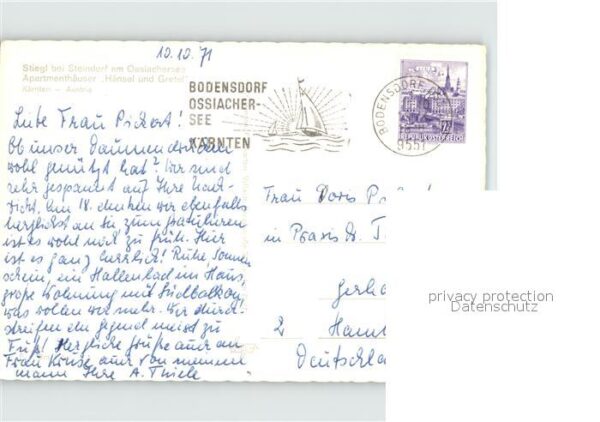 10.10.71
Stiegl bei Steindorf am Ossiachersee
Apartmenthäuser „Hänsel und Gretel"
Kärnten – Austria
BODENSDORF
OSSIACHER-
SEE
KÄRNTEN
BODENSDORF
9551
REPUBLIK ÖSTERREICH
Liebe Frau Pickert!
Ob unser Daumendrücken
wohl genützt hat? Wir sind
sehr gespannt auf Ihre Nach-
richt. Am 18. denken wir ebenfalls
herzlichst an Sie, zum gratulieren
ist es wohl noch zu früh. Hier
ist es ganz herrlich! Ruhe, Sonnen-
schein, ein Hallenbad im Haus,
große Wohnung mit Südbalkon,
was wollen wir mehr. Wir durch-
streifen die Gegend meist zu
Fuß! Herzliche Grüße auch an
Frau Kruse auch von meinem
Mann Ihre A. Thiele
Frau Doris P
in Praxis Dr. T
Gerho
2 Hamb
Deutschla
privacy protection
Datenschutz